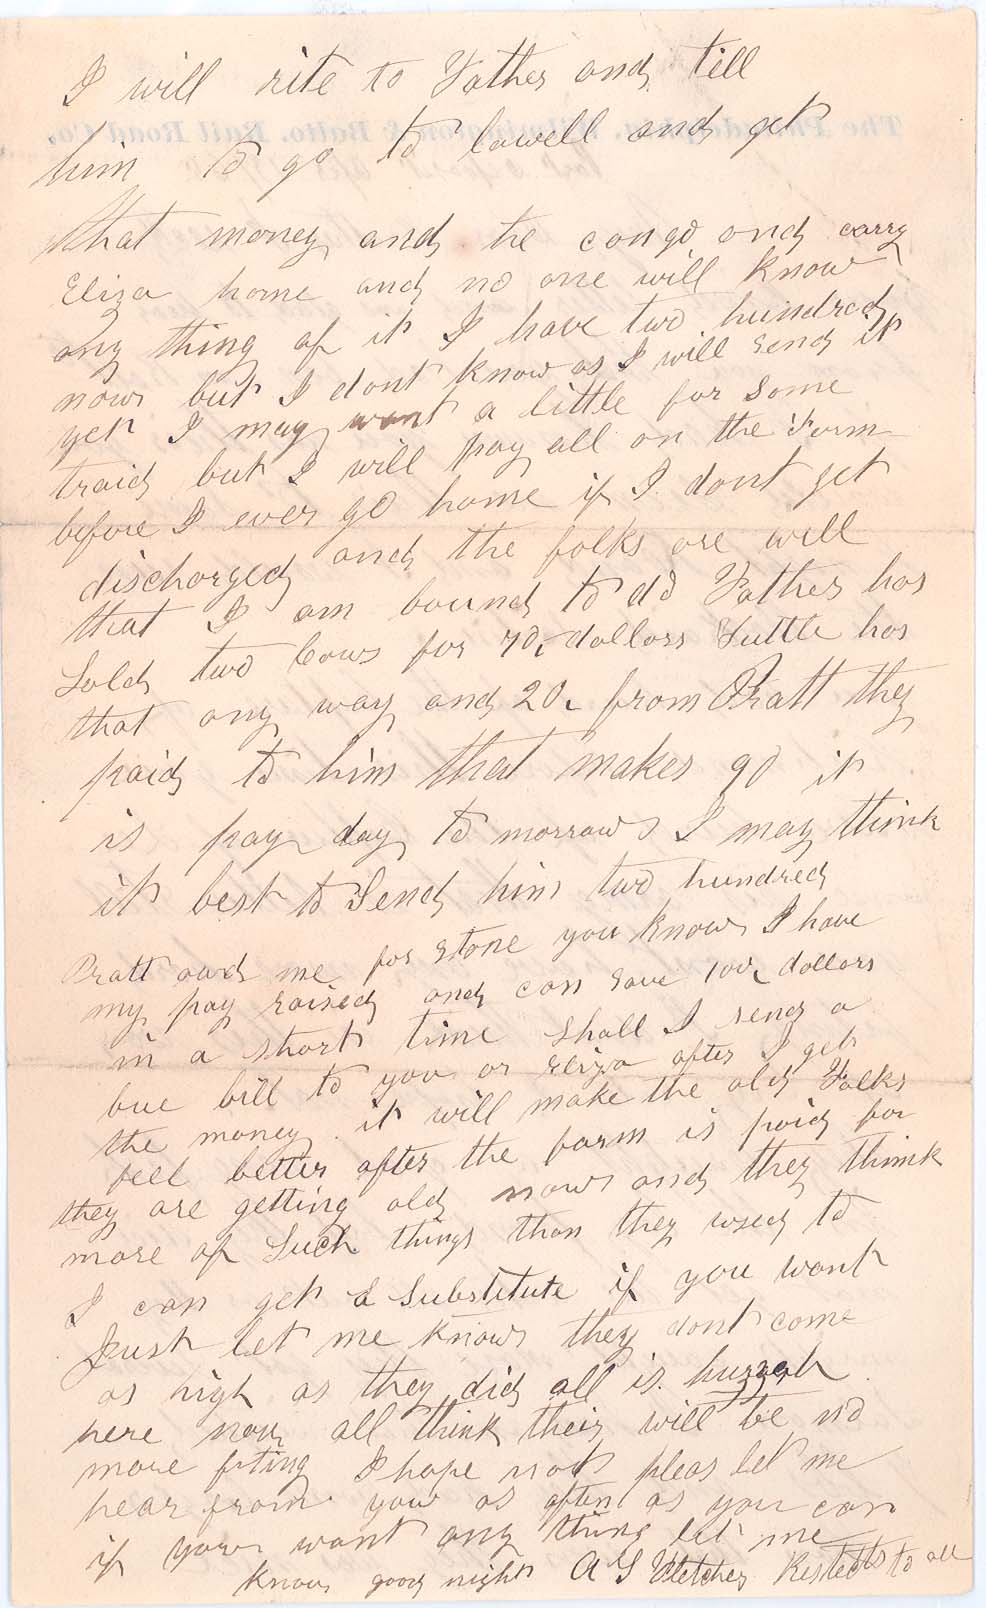 I will rite to Father and till
him to go to Lowell and get
that money and he can go and carry
Eliza home and no one will know
any thing of it I have two hundred
now but I dont know as I will send it
yet I may want a little for some
traid but I will pay all on the Farm
before I ever go home if I dont get
discharged and the folks are well
that I am bound to do Father has
Sold two Cows for 70, dollars Tuttle has
that any way and 20, from Pratt they
paid to him that makes 90 it
is pay day to morrow I may think
it best to Send him two hundred
Pratt owes me for stone you know I have
my pay raised and can save 100, dollars
in a short time Shall I send a
due bill to you or Eliza after I get
the money it will make the old Folks
feel better after the farm is paid for
they are getting old now and they think
more of Such things than they used to
I can get a Substitute if you want
Just let me know they dont come
as high as they did all is huzzah
here now all think their will be no
more fiting I hope not pleas let me
hear from you as often as you can
if you want any thing let me
know good night A G Fletcher Respects to all
The Philadelphia, Wilmington & Balto. Rail Road Co.,